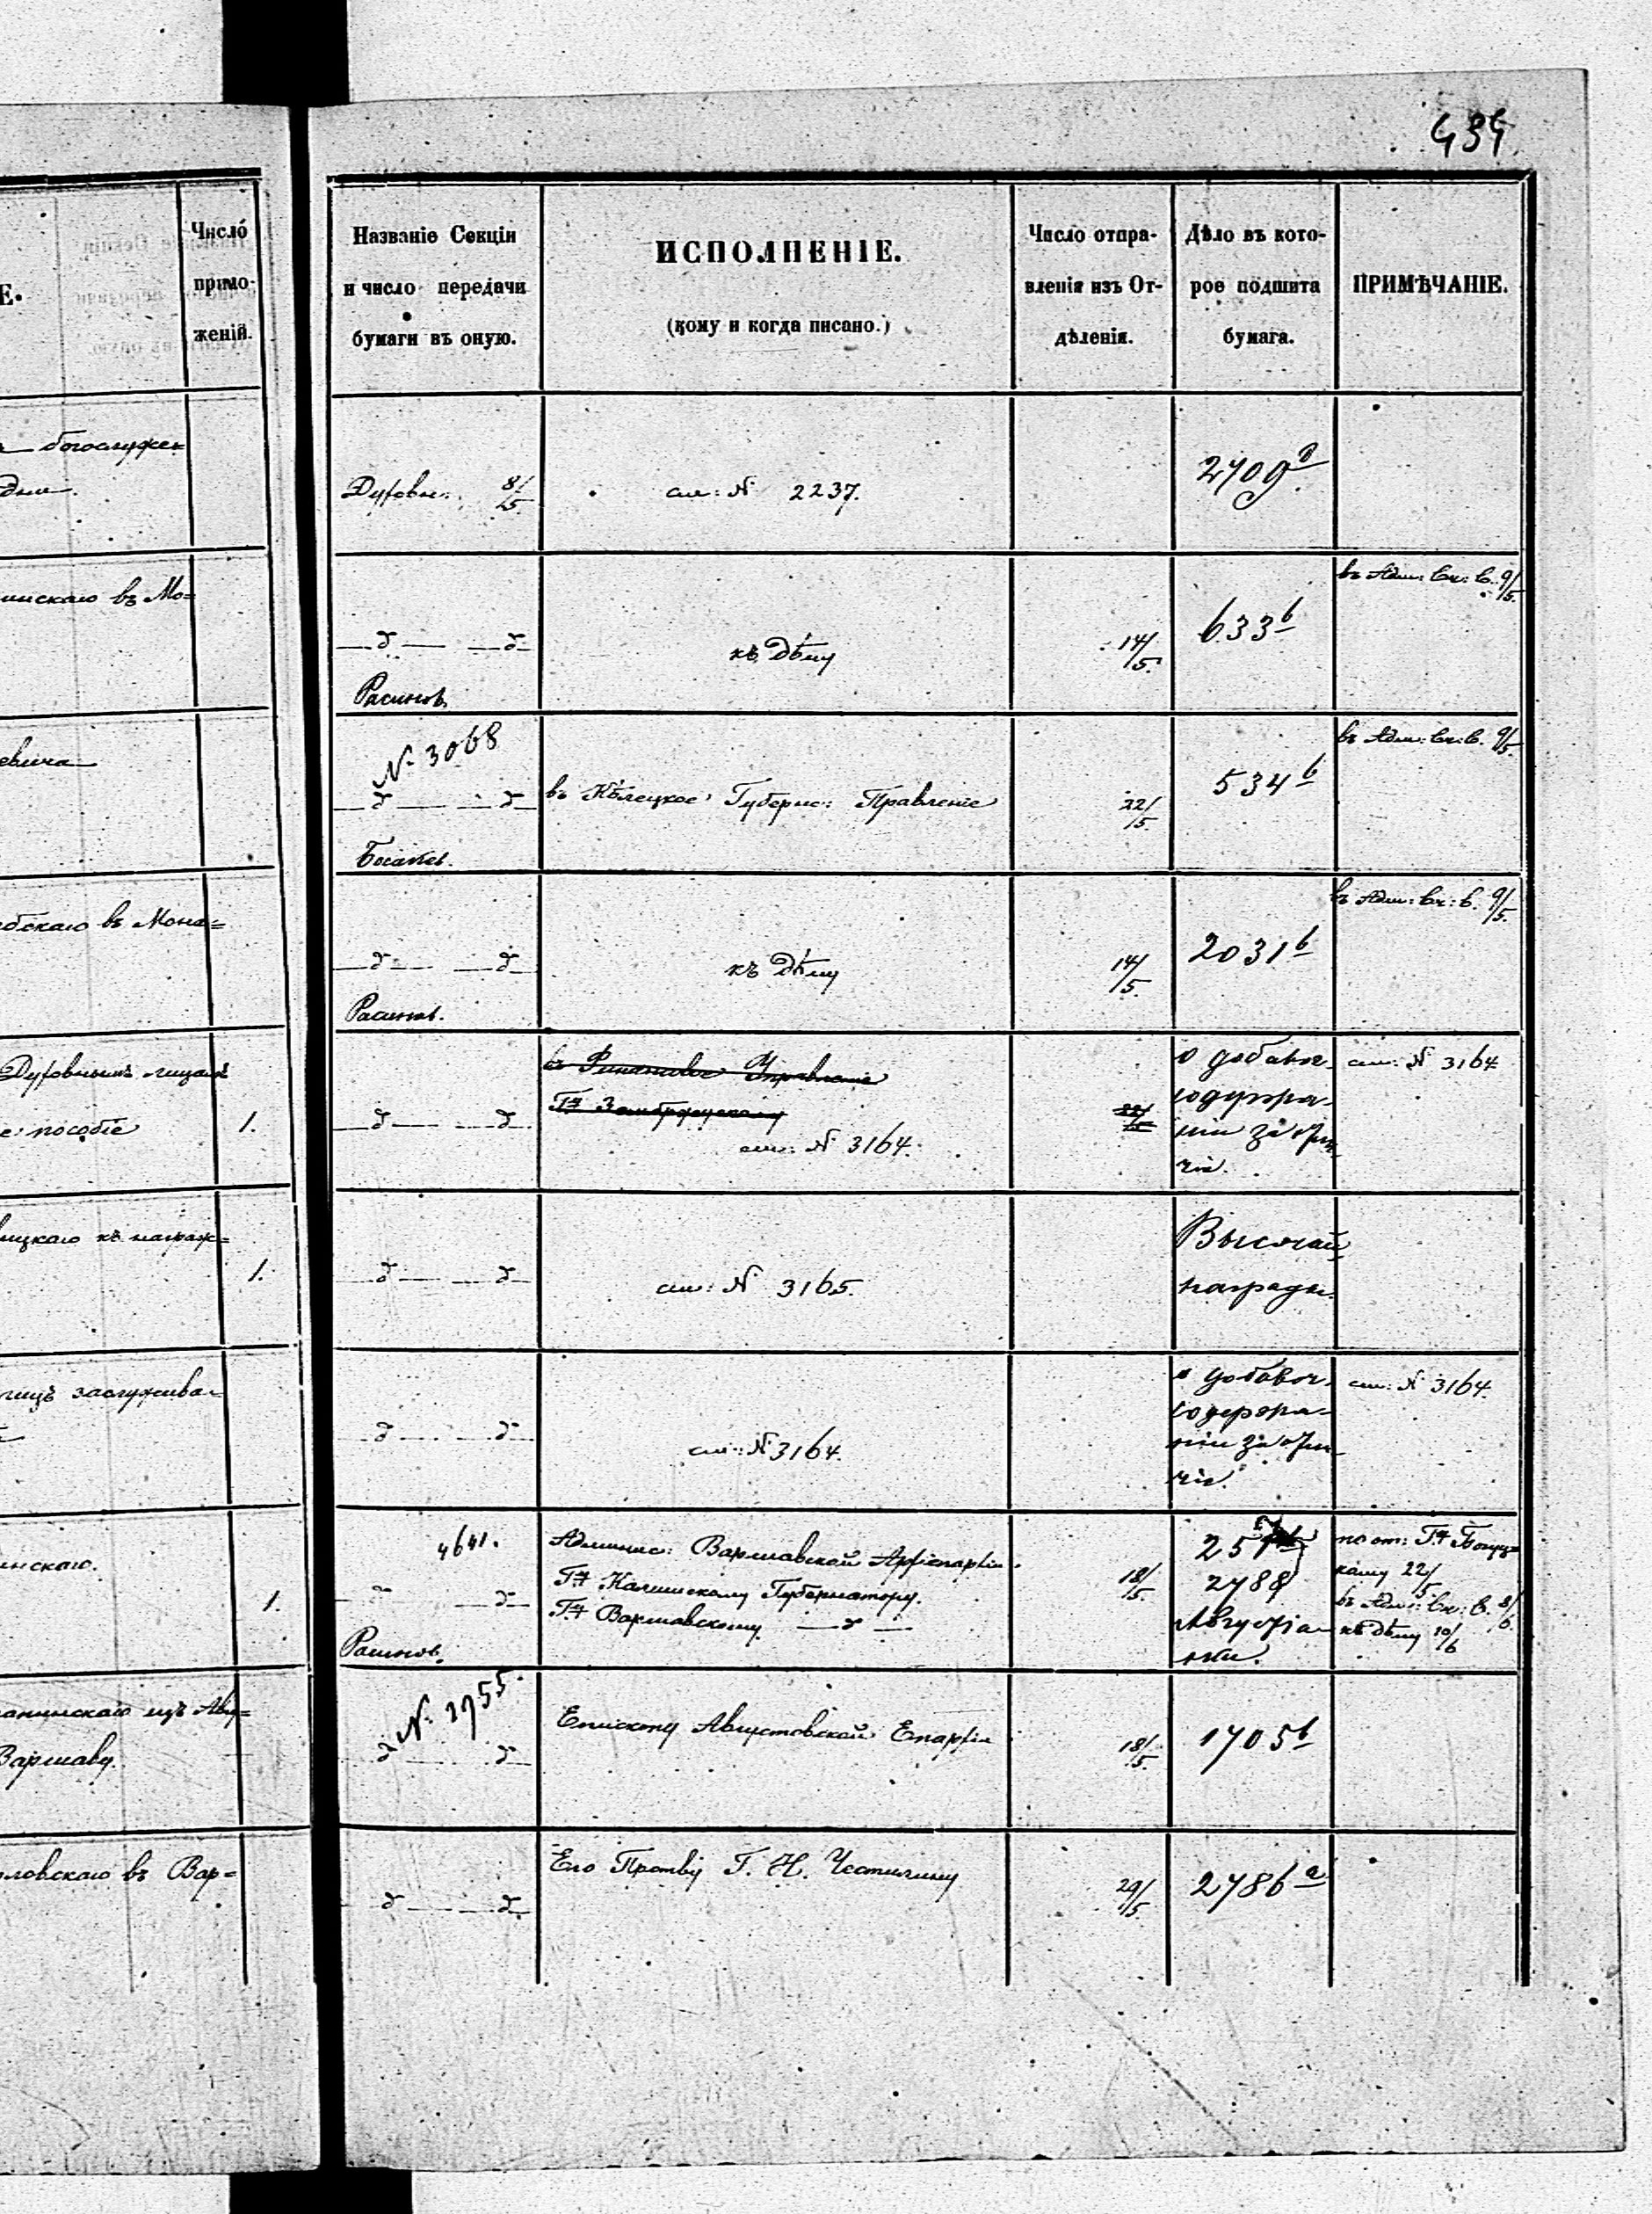 434
Число
приложеній.
Е.
богослуже=
дни.
инскаго въ Мо=
евича
обскаго въ Мона=
Духовнымъ лицамъ
е пособіе
1.
ицкаго къ награж=
1.
лицъ заслужива=
инскаго.
1.
анинскаго изъ Авгу=
Варшаву.
ловскаго въ Вар=
Названіе Секціи
и число передачи
бумаги въ оную.
ИСПОЛНЕНІЕ.
(кому и когда писано.)
Число отпра-
вленія изъ От-
дѣленія.
Дѣло въ кото-
рое подшита
бумага.
ПРИМѢЧАНІЕ.
Духовн: 8/5
см: № 2237.
2709 д
— д — — д —
къ дѣлу
14/5
633 b
въ Адм: Вх: В. 9/5
Расинов.
№ 3068
— д — — д —
въ Кѣлецкое Губерн: Правленіе
22/5
534 b
въ Адм: Вх: В. 9/5
— д — — д —
къ дѣлу
14/5
2031 b
въ Адм: Вх: В. 9/5
Расинов.
въ Финансовое Управленіе
— д — — д —
см: № 3164.
о добавоч.
содержа-
ніи за отли-
чія.
см: № 3164
— д — — д —
см: № 3165.
Высочай.
награды.
— д — — д —
см: № 3164.
о добавоч.
содержа-
ніи за отли-
чія.
см: № 3164.
4641.
— д —
Админис: Варшавской Архіепархіи
Гну Калишскому Губернатору.
Гну Варшавскому — д —
18/5
2788
Августіа-
нки.
22/5
въ Адм: Вх: В. 8/6
къ дѣлу 10/6
Расинов.
№ 2755.
д — — д —
Епископу Августовской Епархіи
18/5
1705 b
— д — — д —
Его Пратву Г. Н. Честилину
29/5
2786 a